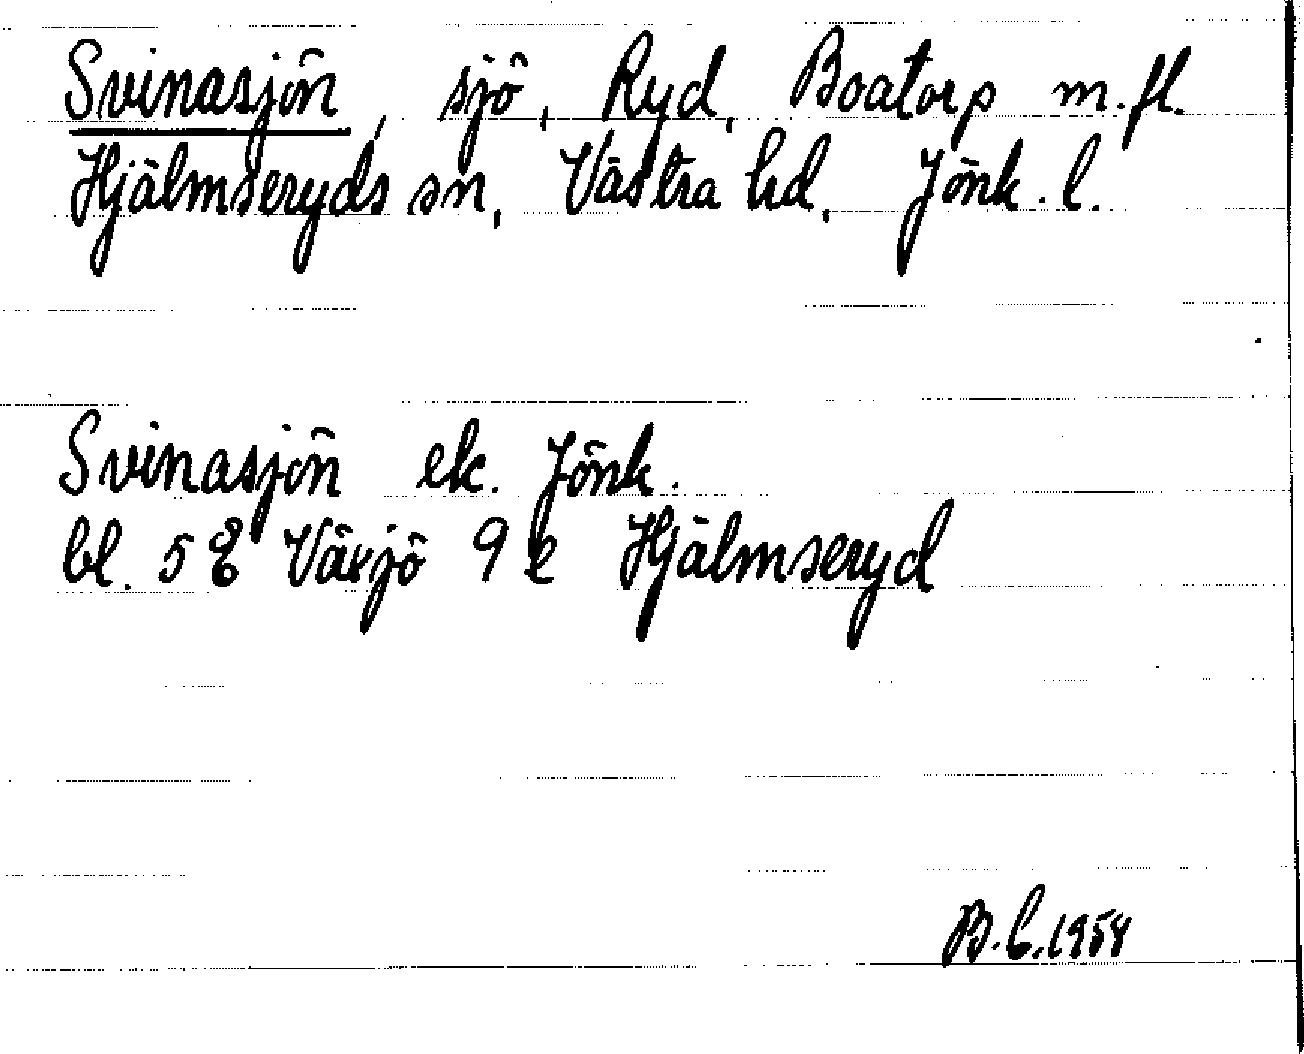 Svinasjön, sjö, Ryd, Boatorp m.fl.
Hjälmseryds sn, Västra hd, Jönk. l.
Svinasjön ek. Jönk.
bl. 5 E Växjö 9 e Hjälmseryd
B. 1958